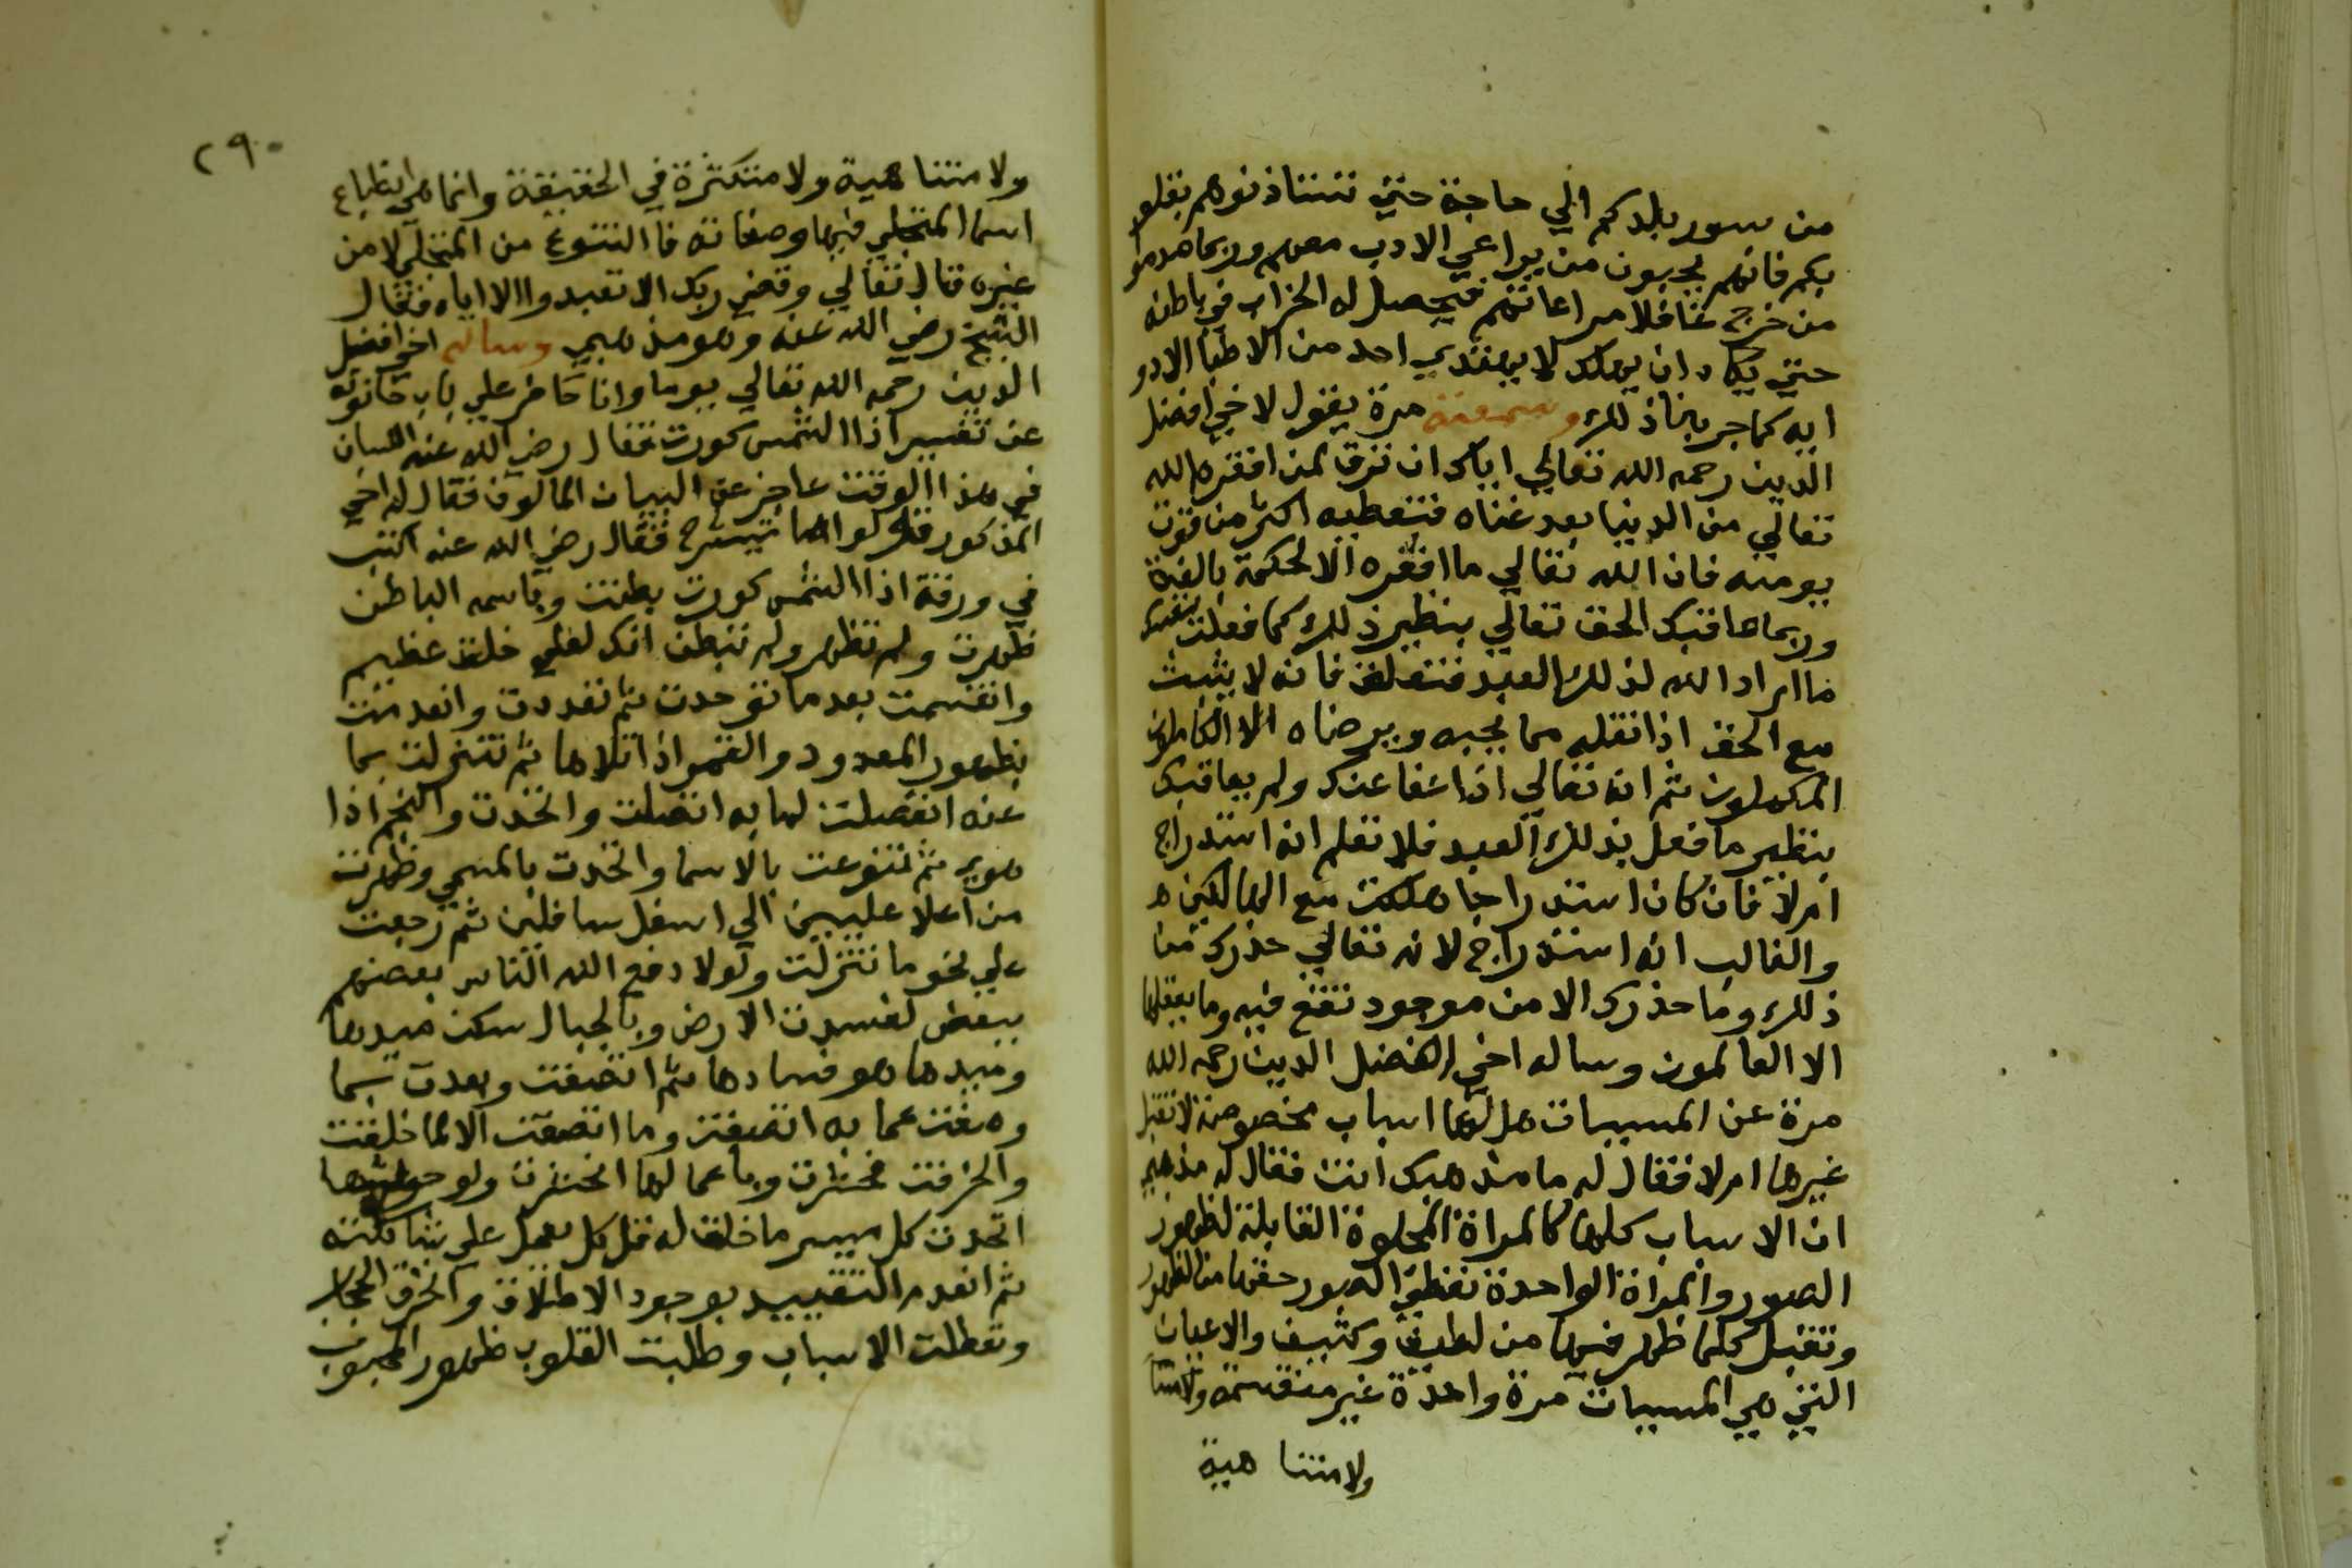 من سور بلدكم الي حاجة حتي تستاذنوهم بقلو
بكم فانهم يحبون من يراعي الادب معهم وربما هدموا
من خرج غافلا مراعاتهم فيحصل له الخراب في باطنه
حتي يكاد ان يهلك لا يهتدي احد من الاطبا الادو
ايه كما جربنا ذلك وسمعته مرة يقول لاخي افضل
الدين رحمه الله تعالي اياك ان ترق لمن افقره الله
تعالي من الدنيا بعد غناه فتعطيه اكثر من قوت
يومه فان الله تعالي ما افقره الا لحكمة بالغة
وربما عاقبك الحق تعالي بنظير ذلك كما فعلت بنقيض
ما اراد الله لذلك العبد فتقلق فانه لا يثبت
مع الحق اذا نقله مما يحبه ويرضاه الا الكاملون
المكملون ثم انه تعالي اذا عفا عنك ولم يعاقبك
بنظير ما فعل بذلك العبد فلا تعلم انه استدراج
ام لا فان كان استدراجا هلكت مع الهالكين ه
والغالب انه استدراج لانه تعالي حذرك من
ذلك وما حذرك الا من موجود تقع فيه وما يعقلها
الا العالمون وساله اخي افضل الدين رحمه الله
مرة عن المسببات هل لها اسباب مخصوصة لا تقبل
غيرها ام لا فقال له ما مذهبك انت فقال له مذهبي
ان الاسباب كلها كالمراة المجلوة القابلة لظهور
الصور والمراة الواحدة تعطي الصور حقها من الظهور
وتقبل كلما ظهر فيها من لطيف وكثيف والاعيان
التي هي المسببات مرة واحدة غير منقسمة
ولا متنا هية
٢٩٠
ولا متنا هية ولا متكثرة في الحقيقة وانما هي انطباع
اسما المتجلي فيها وصفاته فالتنوع من المتجلي لا من
غيره قال تعالي وقضي ربك الا تعبدوا الا اياه فقال
الشيخ رضي الله عنه وهو مذهبي وساله اخي افضل
الدين رحمه الله تعالي يوما وانا حاضر علي باب حانوته
عن تفسير اذا الشمس كورت فقال رضي الله عنه اللسان
في هذا الوقت عاجز عن البيان المالوف فقال له اخي
المذكور قل لوا ما تيسر فقال رضي الله عنه اكتب
في ورقة اذا الشمس كورت بطنت وباسمه الباطن
ظهرت ولم تظهر ولم تبطن انك لعلي خلق عظيم
وانقسمت بعد ما توحدت ثم تعددت وانعدمت
بظهور المعدود والقمر اذا تلاها ثم تنزلت بما
عنه انفصلت لما به اتصلت واتحدت والنجم اذا
هوي ثم تنوعت بالاسما واتحدت بالمسمي وظهرت
من اعلا عليين الي اسفل سافلين ثم رجعت
علي نحو ما تنزلت ولولا دفع الله الناس بعضهم
ببعض لفسدت الارض وبالجبال سكن ميدها
وميدها هو فسادها ثم اتصفت وبعدت بما
وصفت عما به اتصفت وما اتصفت الا لما خلقت
وانحرفت فحشرت وباعمالها انحشرت
اتحدت كل ميسر ما خلق له قل كل يعمل علي شاكلته
ثم انعدم التقييد بوجود الاطلاق وانخرق الحجاب
وتعطلت الاسباب وطلبت القلوب ظهور المحبوب